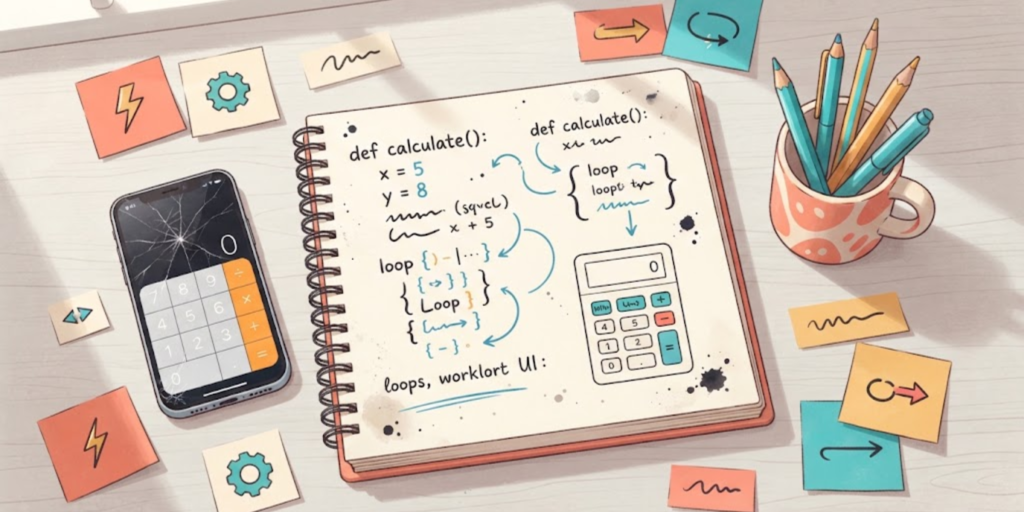 def calculate():
x = 5
y = 8
x + 5
loop {
Loop }
loops, worklort UI:
def calculate():
loop
0
+
4 5 −
1 2
0 . =
0
7 8 9 ÷
4 5 6 ×
1 2 3 +
0 =